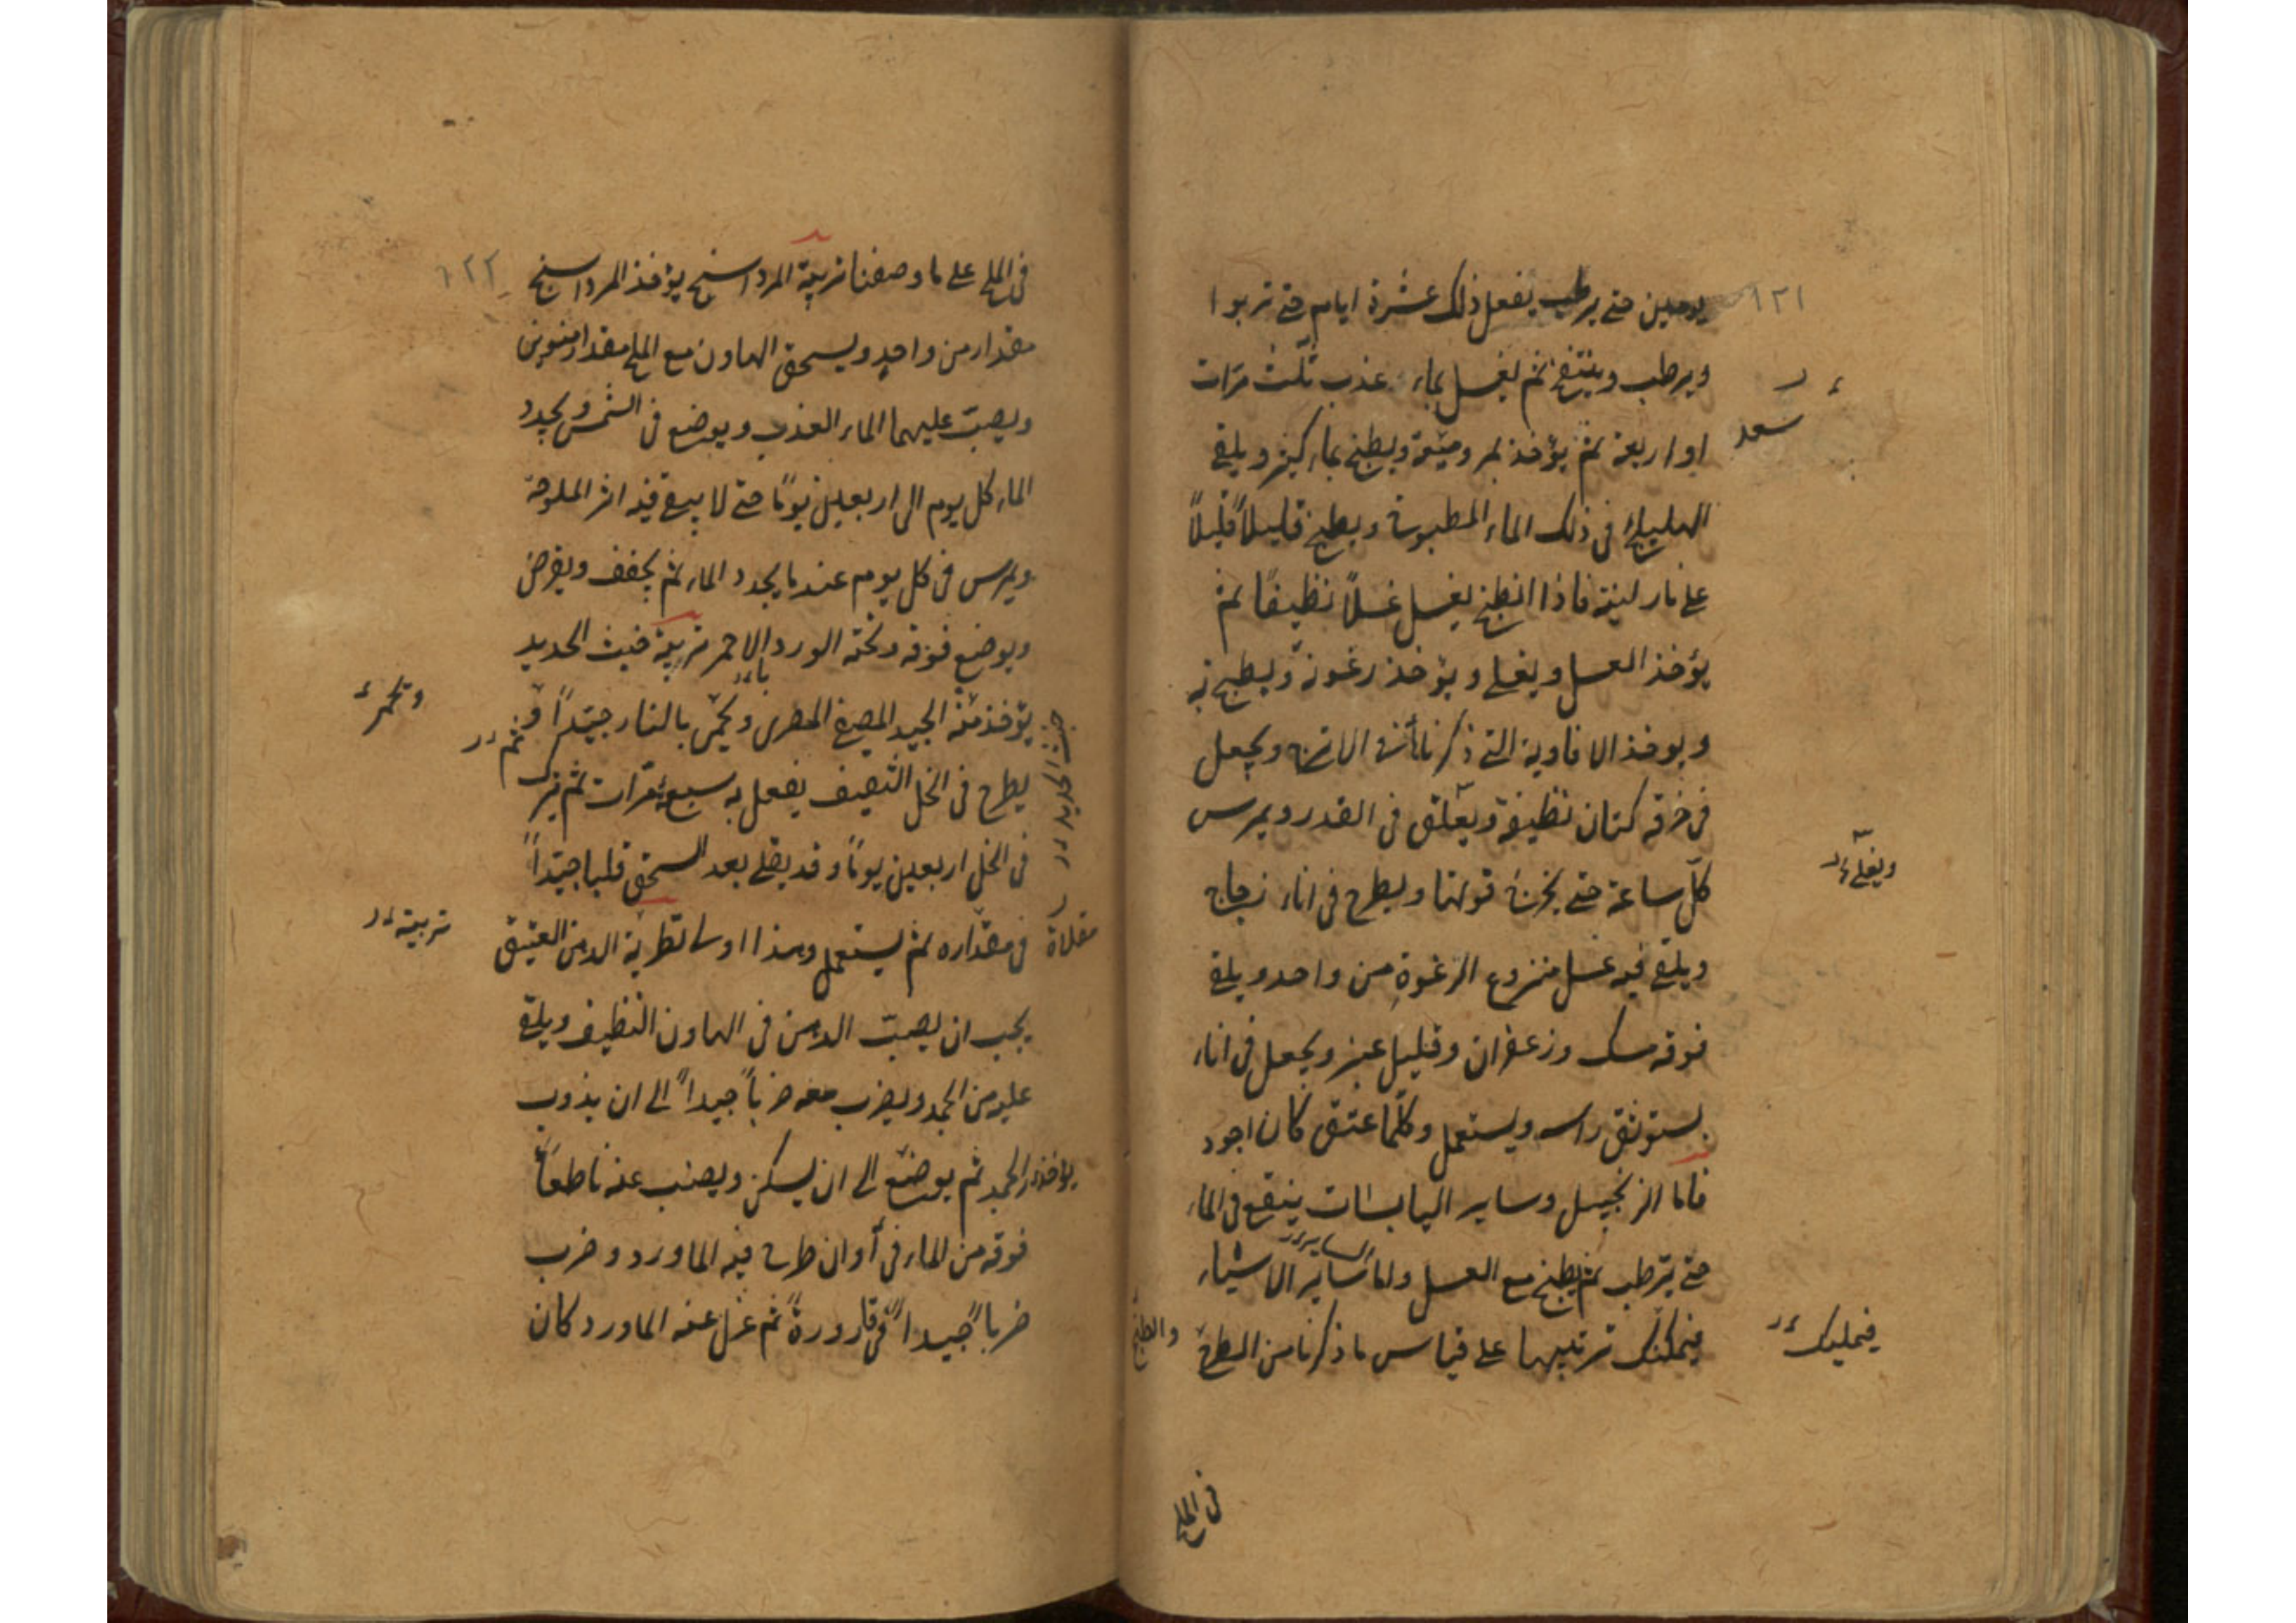 ١٢١
يومين حتى يرطب يفعل ذلك عشرة ايام حتى تربوا
ويرطب وينتفخ ثم يغسل بماء عذب ثلث مرّات
او اربعة ثم يؤخذ لمر وميعة ويطبخ بماء كثير ويلقى
سعد
الهليلج في ذلك الماء المطبوخ ويطبخ قليلاً قليلاً
على نار لينة فاذا انطبخ يغسل غسلاً نظيفاً ثم
يؤخذ العسل ويغلى ويؤخذ رغوته ويطبخ به
ويوخذ الافاوية التي ذكرنا في الاترج ويجعل
في خرقه كتان نظيفة ويعلّق في القدر ويمرس
ويغلى
كلّ ساعة حتى يخرج قوتها ويطرح في اناء زجاج
ويلقى فيه عسل منزوع الرغوة من واحد ويلقى
فوقه مسك وزعفران وقليل عنبر ويجعل في اناء
يستوثق راسه ويستعمل وكلّما عتق كان اجود
فاما الزنجبيل وساير اليابسات ينقع في الماء
حتى يترطب ثم يطبخ مع العسل واما ساير الاشياء
فيمكنك تربيبها على قياس ما ذكرنا من الطرح
والطبخ
في الملح
١٢٢
في الملح على ما وصفنا تربية المرداسنج يؤخذ المرداسنج
مقدار من واحدٍ ويسحق الهاون مع الملح مقدار منوين
ويصبّ عليهما الماء العذب ويوضع في الشمس ويجدد
الماء كل يوم الى اربعين يوماً حتى لا يبقى فيه اثر الملوحة
ويمرس في كل يوم عند ما يجدد الماء ثم يجفف ويقرض
ويوضع فوقه وتحته الورد الاحمر تربية خبث الحديد
يؤخذ منه الجيد المصرى ويحمّى بالنار جيّداً و
ثم
يطرح في الخل الثقيف يفعل به سبع مرّات ثم يترك
خبث الحديد
في الخل اربعين يوماً وقد يقلى بعد السحق قليا جيّداً
مقلاة
في مقداره ثم يستعمل وهذا اوساتطرية الدهن العتيق
تربية
يجب ان يصبّ الدهن في الهاون النظيف ويلقى
عليه من الجمد ويضرب معه ضرباً جيداً الى ان يذوب
يؤخذ الجمد ثم يوضع الى ان يسكن ويصبّ عنه
فوقه من الماء في أوان طرح فيه الماورد وضرب
ضرباً جيداً في قارورة ثم عزل عنه الماورد كان